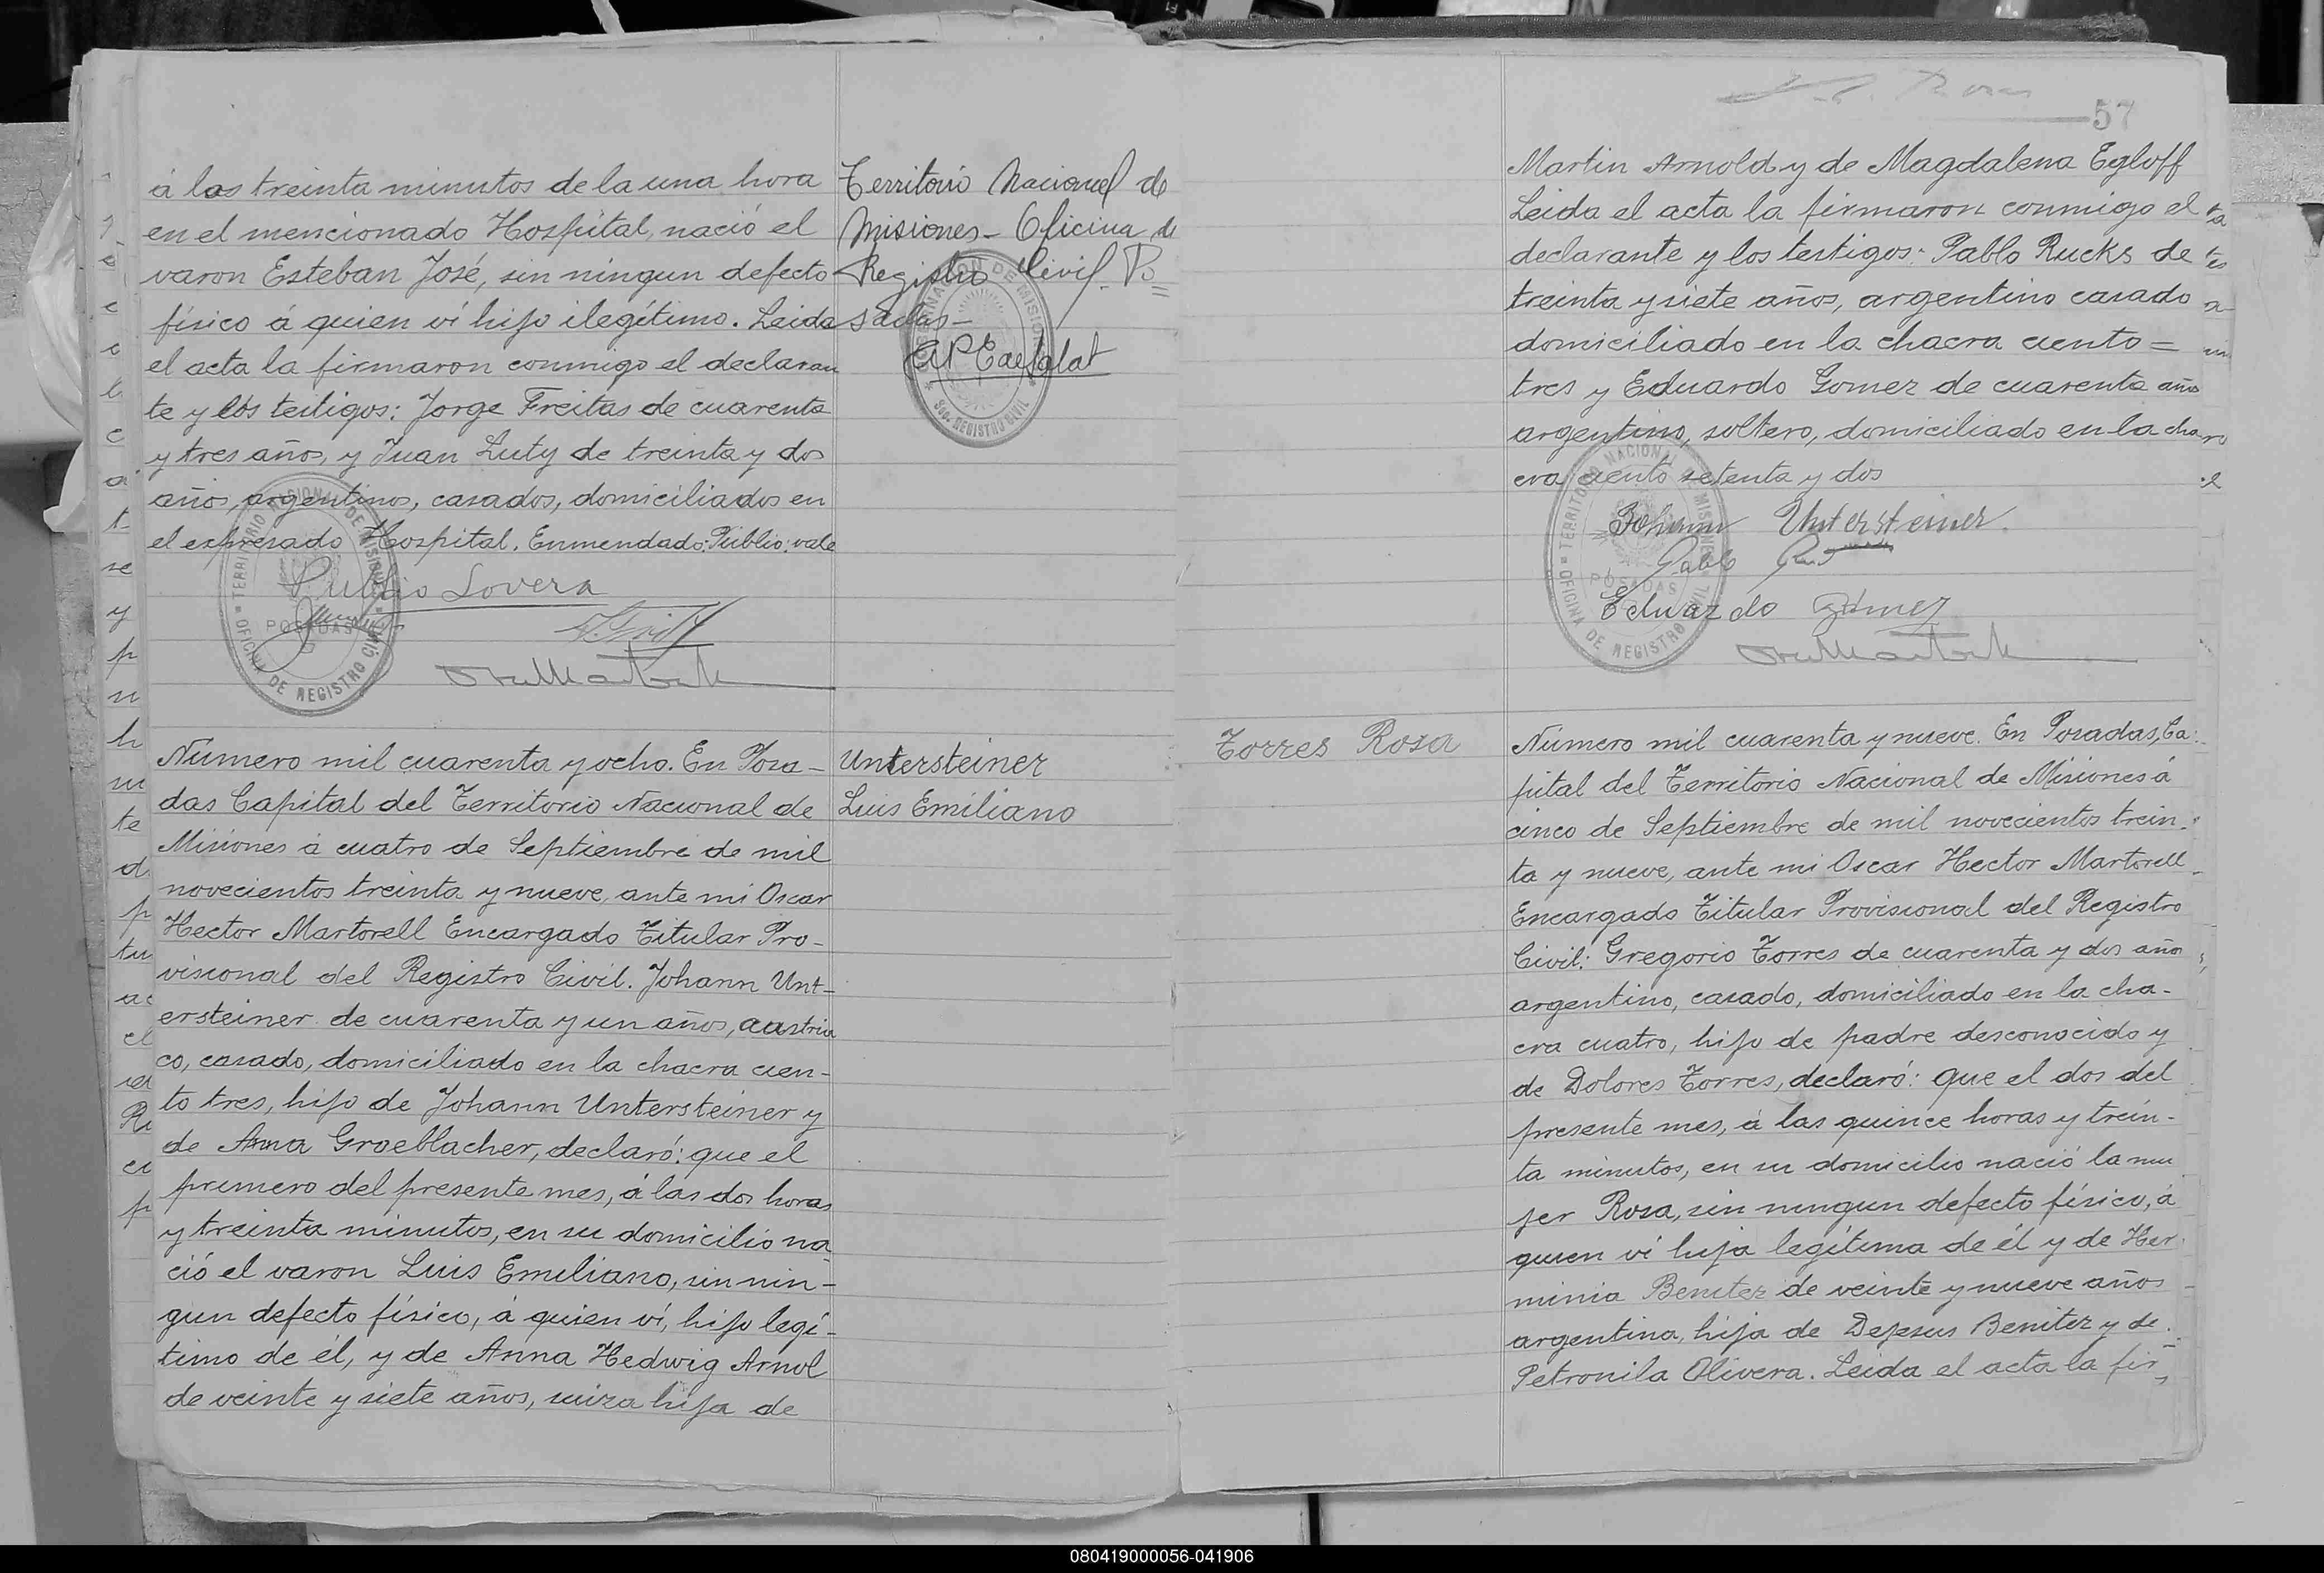 á las treinta minutos de la una hora
en el mencionado Hospital, nació el
varon Esteban José, sin ningun defecto
físico á quien ví hijo ilegítimo. Leida
el acta la firmaron conmigo el declaran
te y los testigos: Jorge Freitas de cuarenta
y tres años, y Juan Luty de treinta y dos
años, argentinos, casados, domiciliados en
el expresado Hospital. Enmendado: Publio: vale
Publio Lovera
TERRITORIO NACIONAL DE MISIONES
POSADAS
OFICINA DE REGISTRO CIVIL
Territorio Nacional de
Misiones - Oficina de
Registro Civil. Po=
sadas-
GOBERNACION DE MISIONES
Sec. REGISTRO CIVIL
Número mil cuarenta y ocho. En Posa-
das Capital del Territorio Nacional de
Misiones á cuatro de Septiembre de mil
novecientos treinta y nueve, ante mi Oscar
Hector Martorell Encargado Titular Pro-
visional del Registro Civil. Johann Unt-
ersteiner de cuarenta y un años, austria
co, casado, domiciliado en la chacra cien-
to tres, hijo de Johann Untersteiner y
de Anna Groeblacher, declaró: que el
primero del presente mes, á las dos horas
y treinta minutos, en su domicilio na
ció el varon Luis Emiliano, sin nin-
gun defecto físico, á quien ví, hijo legí-
timo de él, y de Anna Hedwig Arnol
de veinte y siete años, suiza hija de
Untersteiner
Luis Emiliano
57
Martin Arnold y de Magdalena Egloff
Leida el acta la firmaron conmigo el
declarante y los testigos: Pablo Rucks de
treinta y siete años, argentino casado
domiciliado en la chacra ciento=
tres y Eduardo Gomez de cuarenta años
argentino, soltero, domiciliado en la cha
cra ciento setenta y dos
Johann Untersteiner.
Pablo
Eduardo Gómez
TERRITORIO NACIONAL MISIONES
POSADAS
OFICINA DE REGISTRO CIVIL
Torres Rosa
Número mil cuarenta y nueve. En Posadas, Ca-
pital del Territorio Nacional de Misiones á
cinco de Septiembre de mil novecientos trein-
ta y nueve, ante mi Oscar Hector Martorell
Encargado Titular Provisional del Registro
Civil: Gregorio Torres de cuarenta y dos años
argentino, casado, domiciliado en la cha-
cra cuatro, hijo de padre desconocido y
de Dolores Torres, declaró: que el dos del
presente mes, á las quince horas y trein-
ta minutos, en su domicilio nació la mu
jer Rosa, sin ningun defecto físico, á
quien ví hija legítima de él y de Her-
minia Benitez de veinte y nueve años
argentina, hija de Dejesus Benitez y de
Petronila Olivera. Leida el acta la fir-
080419000056-041906